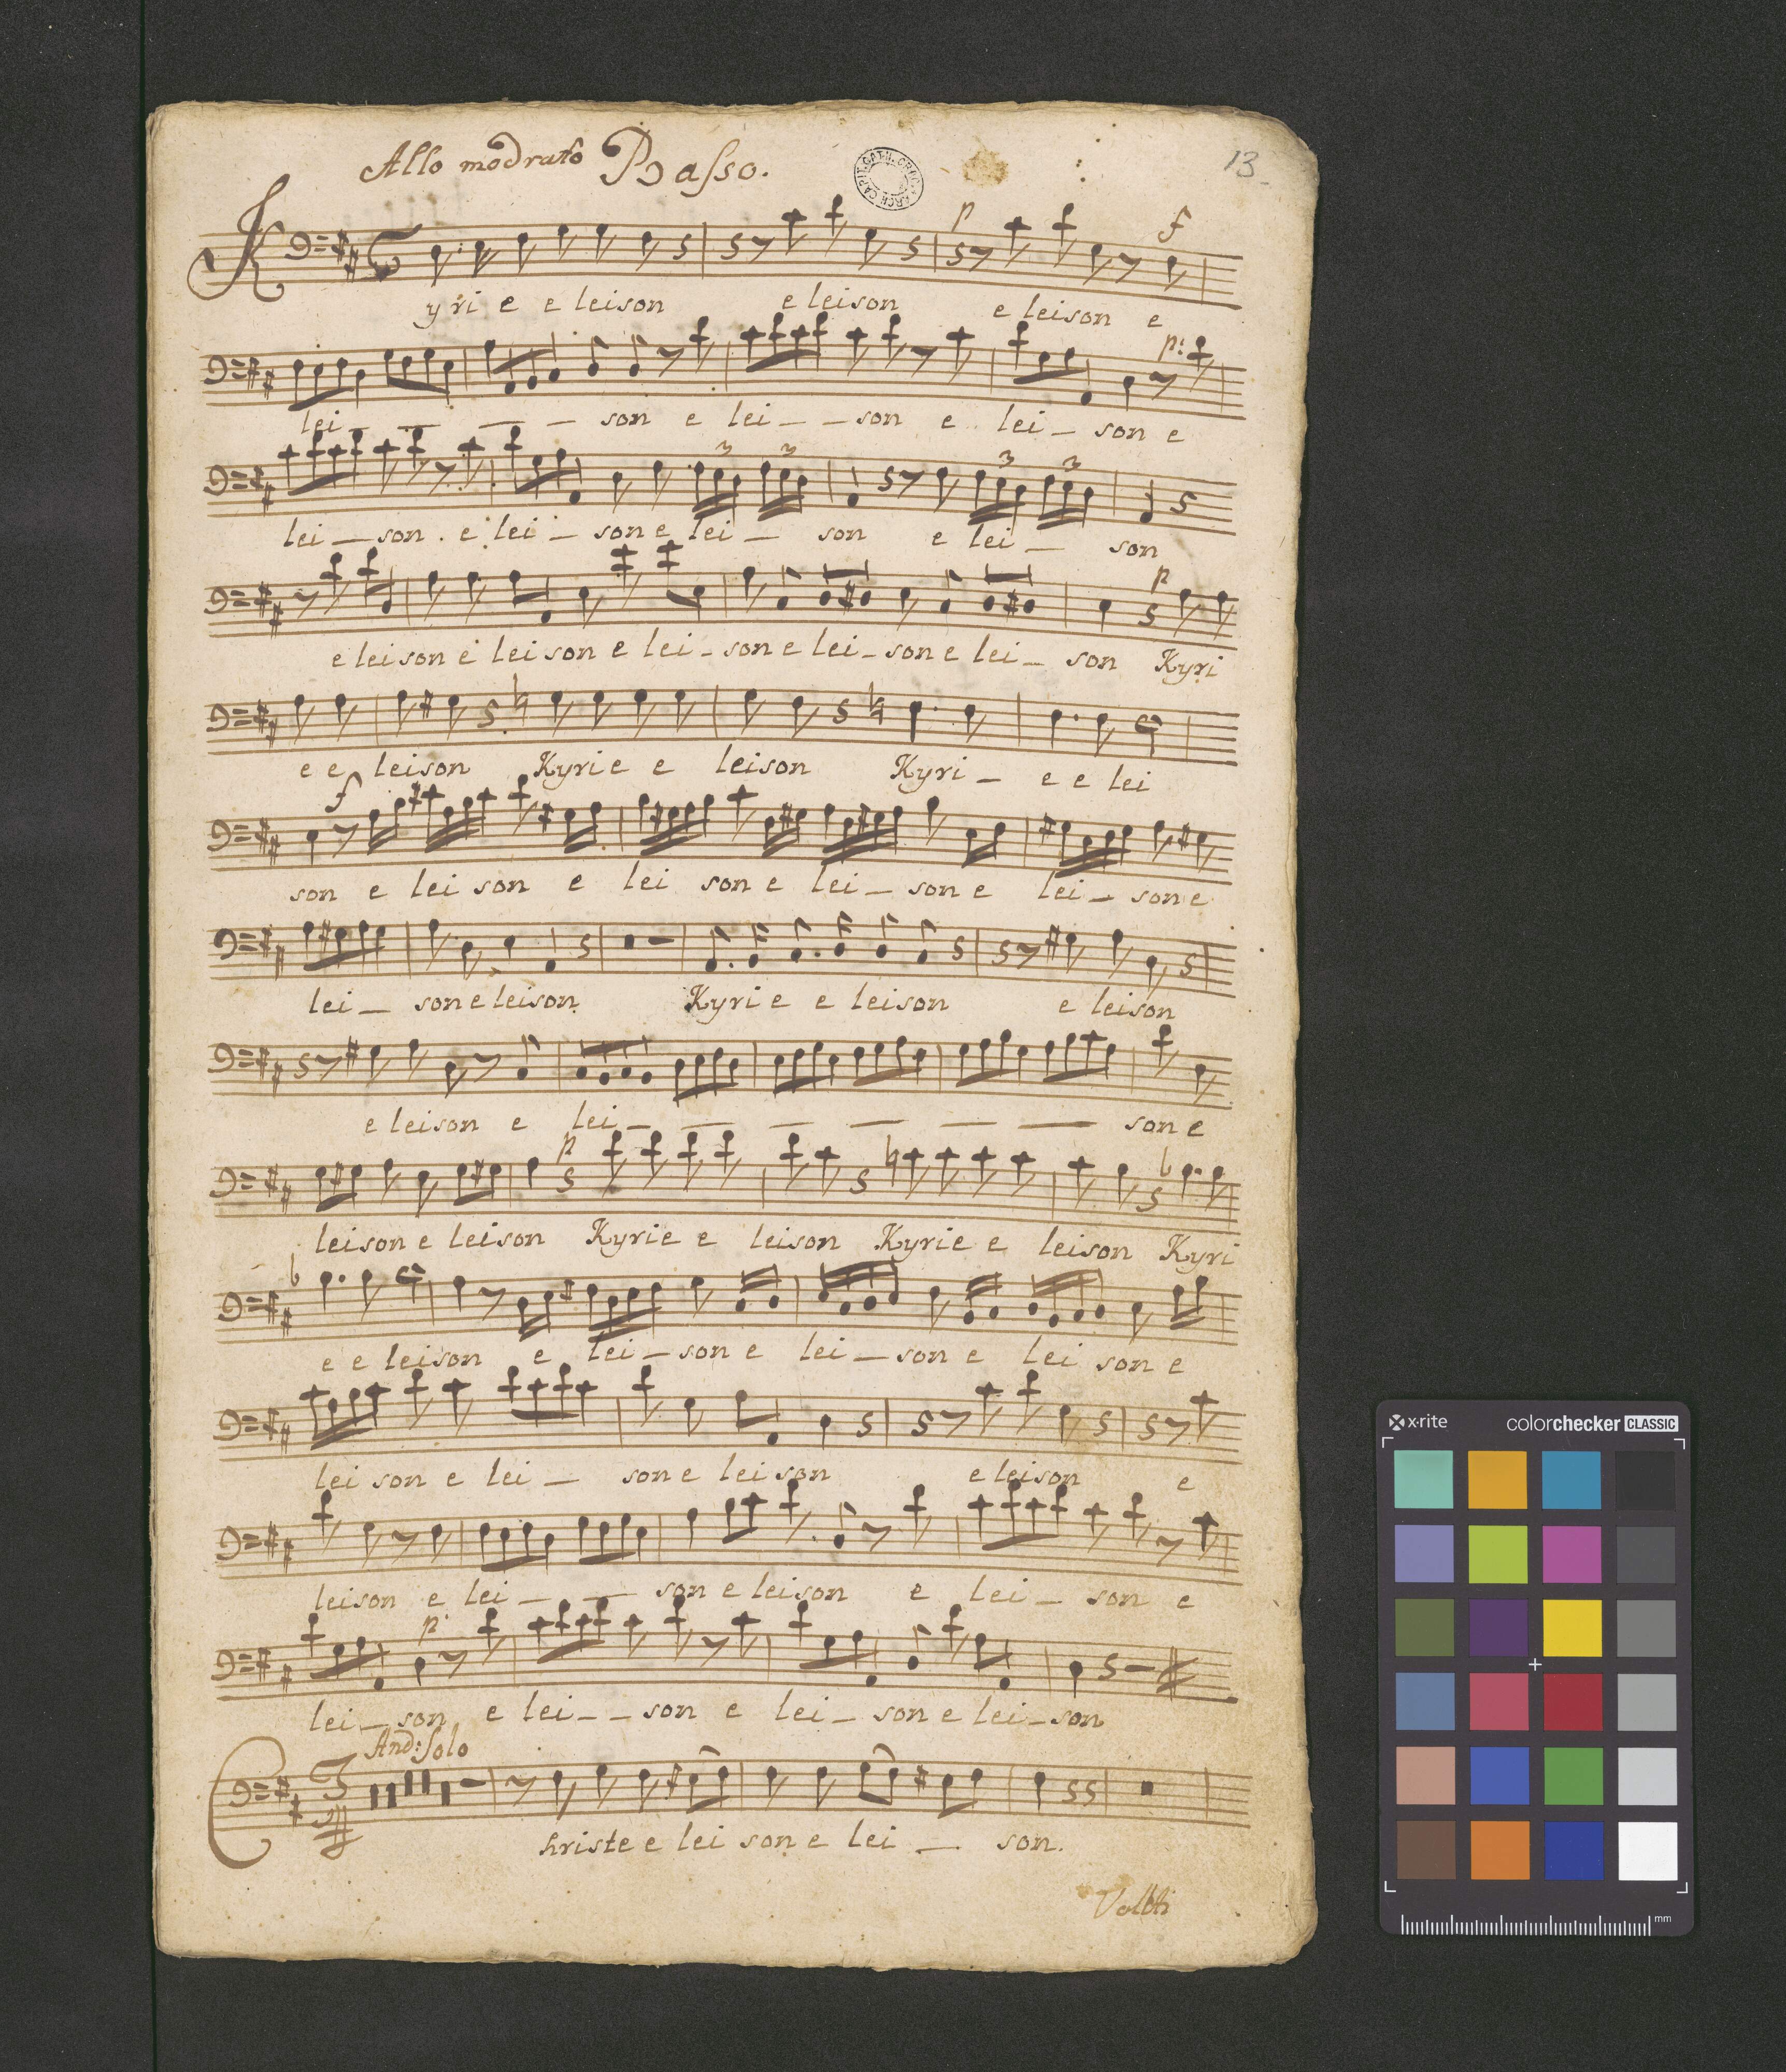 Allo modrato Basso.
13
p f
Kyri e e leison e leison e leison e
p:
lei - - - - son e lei - - son e lei - son e
3 3 3 3
lei - son . e lei - son e lei - son e lei - son
p
e leison e leison e lei - son e lei - son e lei - son Kyri
e e leison Kyrie e leison Kyri - e e lei
f
son e lei son e lei son e lei - son e lei - son e
lei - son e leison Kyri e e leison e leison
e leison e lei - - - - - - son e
p
leison e leison Kyrie e leison Kyrie e leison Kyri
e e leison e lei - son e lei - son e lei son e
lei son e lei - son e leison e leison e
leison e lei - - son e leison e lei - son e
p
lei - son e lei - - son e lei - son e lei - son
And: Solo
Christe e lei son e lei - son.
x-rite colorchecker CLASSIC
mm